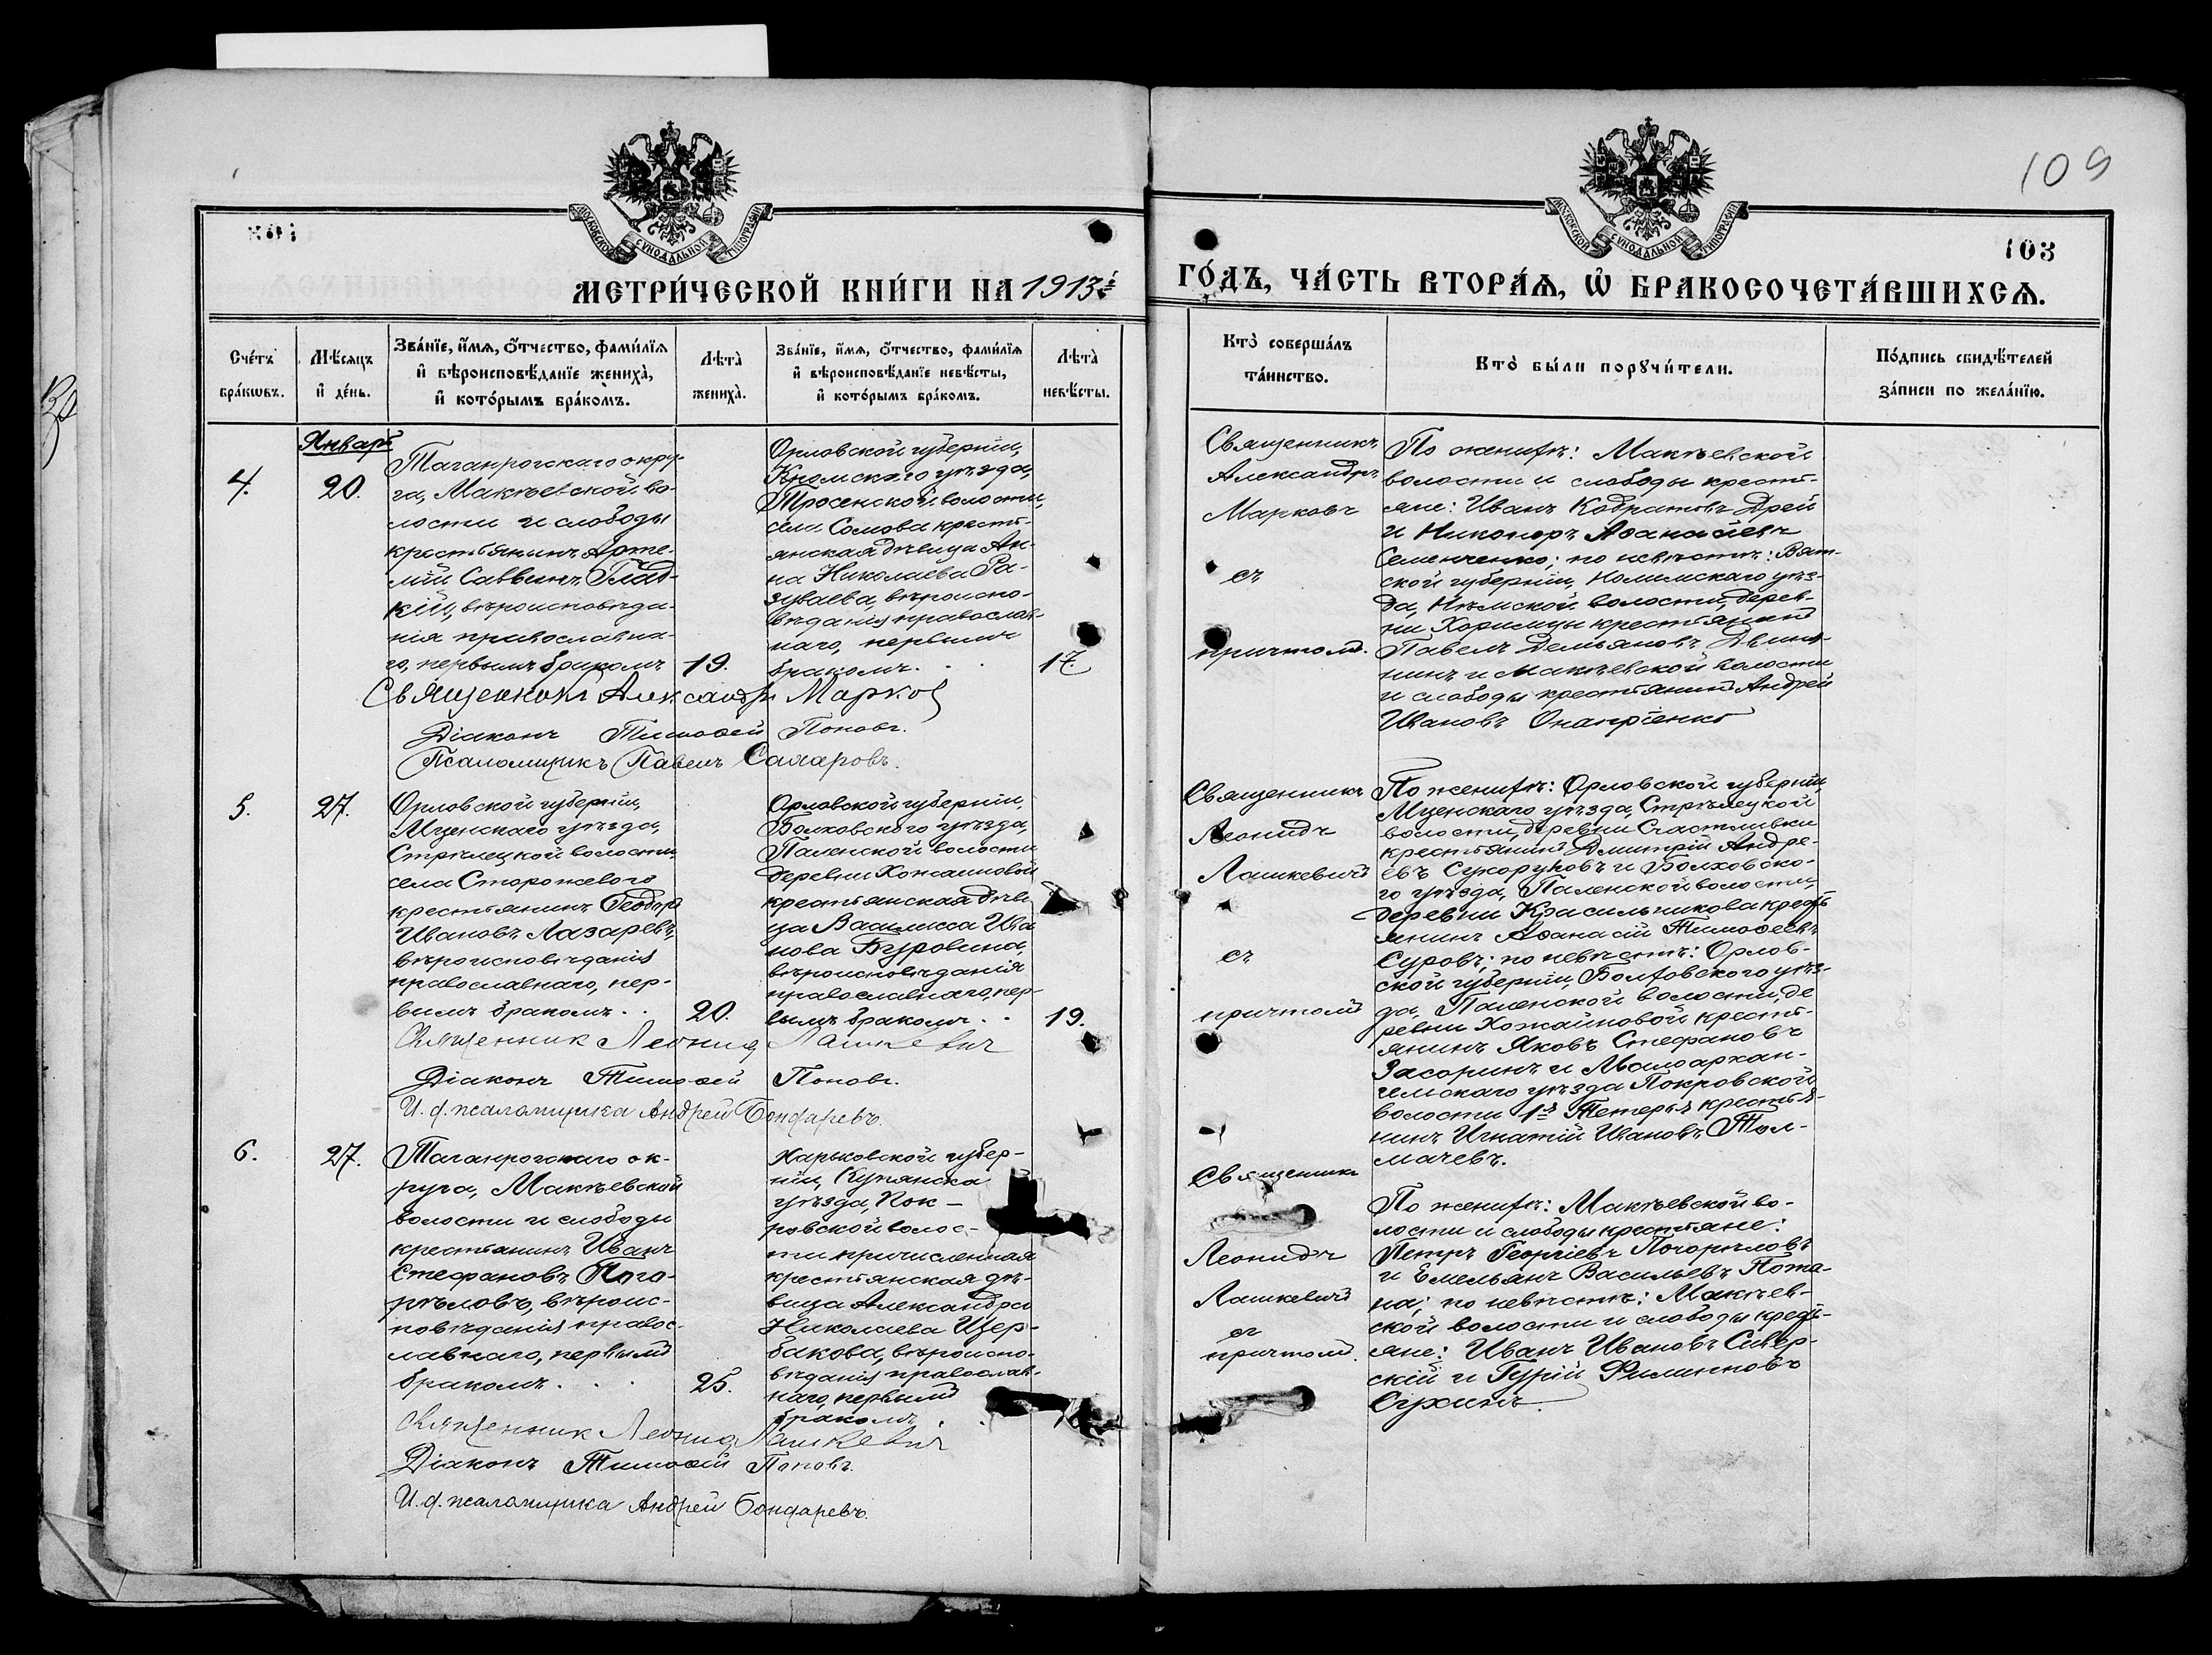 109
103
МОСКОВСКОЙ СѴНОДАЛЬНОЙ ТИПОГРАФІИ
МОСКОВСКОЙ СѴНОДАЛЬНОЙ ТИПОГРАФІИ
МЕТРИ́ЧЕСКОЙ КНИ́ГИ НА 1913й
ГО́ДЪ, ЧА́СТЬ ВТОРА́Ѧ, Ѡ҆ БРАКОСОЧЕТА́ВШИХСѦ.
Сче́тъ
бра́кѡвъ.
Мѣ́сяцъ
и҆ де́нь.
Зва́нїе, и҆́мѧ, ѻ҆́тчество, фами́лїѧ
и҆ вѣроисповѣ́данїе жениха̀,
и҆ кото́рымъ бра́комъ.
Лѣта̀
жениха̀.
Зва́нїе, и҆́мѧ, ѻ҆́тчество, фами́лїѧ
и҆ вѣроисповѣ́данїе невѣ́сты,
и҆ кото́рымъ бра́комъ.
Лѣта̀
невѣ́сты.
Кто̀ соверша́лъ
та́инство.
Кто̀ бы́ли порꙋчи́тели.
По́дпись свидѣ́телей
за́писи по жела́нїю.
4.
Январь
20.
Таганрогскаго окру-
га, Макѣевской во-
лости и слободы
крестьянинъ Арте-
мій Саввинъ Глад-
кій, вѣроисповѣда-
нія православна-
го, первымъ бракомъ
19.
Орловской губерніи,
Кромскаго уѣзда,
Тросенской волости,
села Сомова кресть-
янская дѣвица Ан-
на Николаева Ра-
зуваева, вѣроиспо-
вѣданія православ-
наго, первымъ
бракомъ. . .
17.
Священникъ
Александръ
Марковъ
съ
причтомъ.
По женихѣ: Макѣевской
волости и слободы кресть-
яне: Иванъ Кодратовъ Дрей
и Никоноръ Аѳанасіевъ
Семенченко; по невѣстѣ: Вят-
ской губерніи, Нолинскаго уѣз-
да, Нѣмской волости, дерев-
ни крестьянинъ
Павелъ Демьяновъ
и Макѣевской волости
и слободы крестьянинъ Андрей
Ивановъ Онапріенко
Священникъ Александръ Марковъ
Діаконъ Тимоѳей Поповъ.
Псаломщикъ Павелъ
5.
27.
Орловской губерніи,
Мценскаго уѣзда,
Стрѣлецкой волости,
села Сторожевого
крестьянинъ Ѳеодоръ
Ивановъ Лазаревъ,
вѣроисповѣданія
православнаго, пер-
вымъ бракомъ. .
20.
Орловской губерніи,
Болховского уѣзда,
Паленской волости
деревни Хожаиновой
крестьянская дѣви
ца Василисса Ива
нова Буровина,
вѣроисповѣданія
православнаго, пер-
вымъ бракомъ. .
19.
Священникъ
Леонидъ
Лашкевичъ
съ
причтомъ
По женихѣ: Орловской губерніи
Мценскаго уѣзда, Стрѣлецкой
волости, деревни Счастливки
крестьянинъ Дмитрій Андре-
евъ Сукоруковъ и Болховско-
го уѣзда, Паленской волости,
деревни Красильникова кресть
янинъ Аѳанасій Тимоѳеевъ
Суровъ; по невѣстѣ: Орлов-
ской губерніи, Болховского уѣз-
да, Паленской волости, де
ревни Хожаиновой кресть-
янинъ Яковъ Стефановъ
Засоринъ и Малоархан-
гельскаго уѣзда Покровской
волости 1й крестья-
нинъ Игнатій Ивановъ Тол-
мачевъ.
Священник Леонид Лашкевич
Діаконъ Тимоѳей Поповъ.
И. д. псаломщика Андрей Бондаревъ.
6.
27.
Таганрогскаго ок-
руга, Макѣевской
волости и слободы
крестьянинъ Иванъ
Стефановъ Пого-
рѣловъ, вѣроис-
повѣданія правос-
лавнаго, первымъ
бракомъ. . .
25.
Харьковской губер-
ніи, Купянска
уѣзда, Пок-
ровской волос-
ти причисленная
крестьянская дѣ-
вица Александра
Николаева Щер-
бакова, вѣроиспо-
вѣданія православ-
наго, первымъ
бракомъ. .
Священникъ
Леонидъ
Лашкевичъ
съ
причтомъ.
По женихѣ: Макѣевской во-
лости и слободы крестьяне:
Петръ Георгіевъ Погорѣловъ
и Емельянъ Васильевъ Пота-
на; по невѣстѣ: Макѣев-
ской волости и слободы кресть-
яне: Иванъ Ивановъ Сивер-
скій и Гурій Филипповъ
Сухинъ.
Священник Леонид Лашкевич
Діаконъ Тимоѳей Поповъ.
И. д. псаломщика Андрей Бондаревъ.